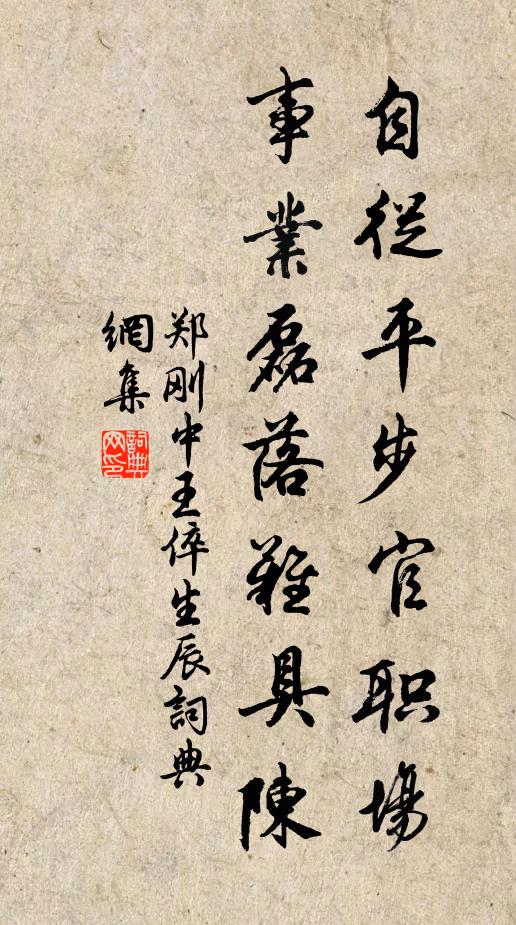 自從平步官职場
事業磊落難具陳
郑刚中王倅生辰詞典
網集
詞典网印